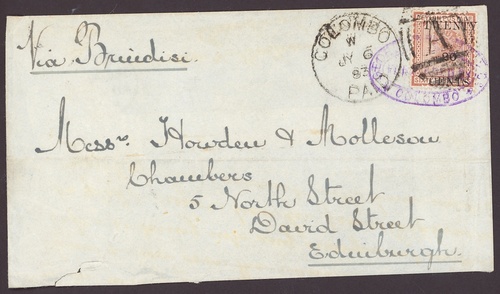 Via Brindisi
COLOMBO
W
JY 6
83
PAID
TWENTY
20
CENTS
COLOMBO
Messrs. Howden & Molleson
Chambers
5 North Street
David Street
Edinburgh.